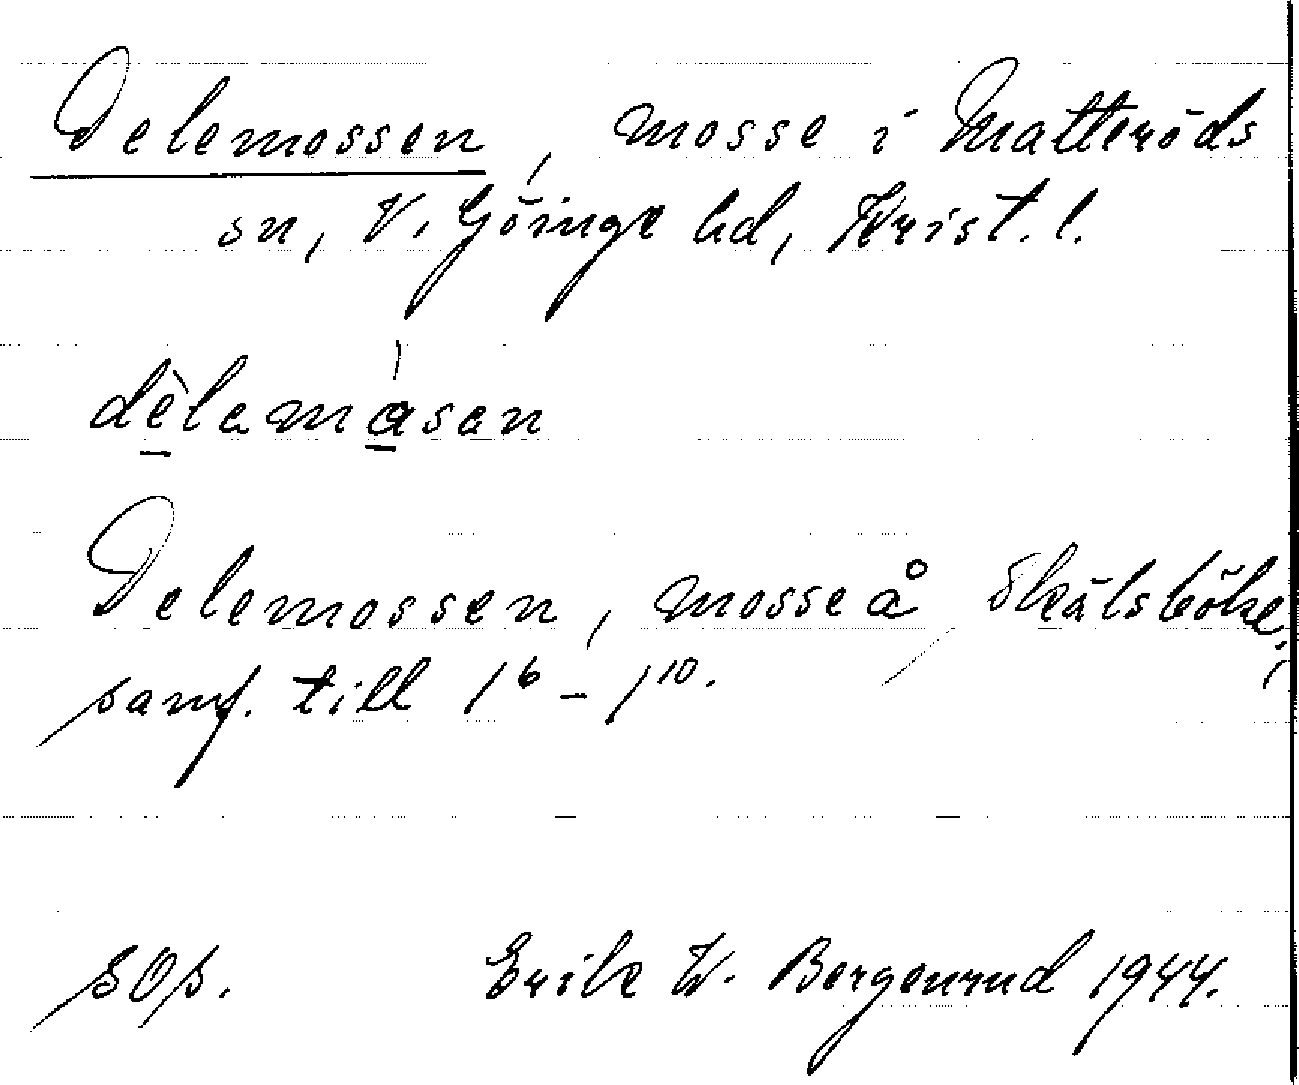 Delemossen, mosse i Matteröds
sn, V. Göinge hd, Krist. l.
dèlamàsan
Delemossen, mosse å Skälsböke,
samf. till 1⁶ – 1¹⁰.
sOp. Erik W. Borgenrud 1944.